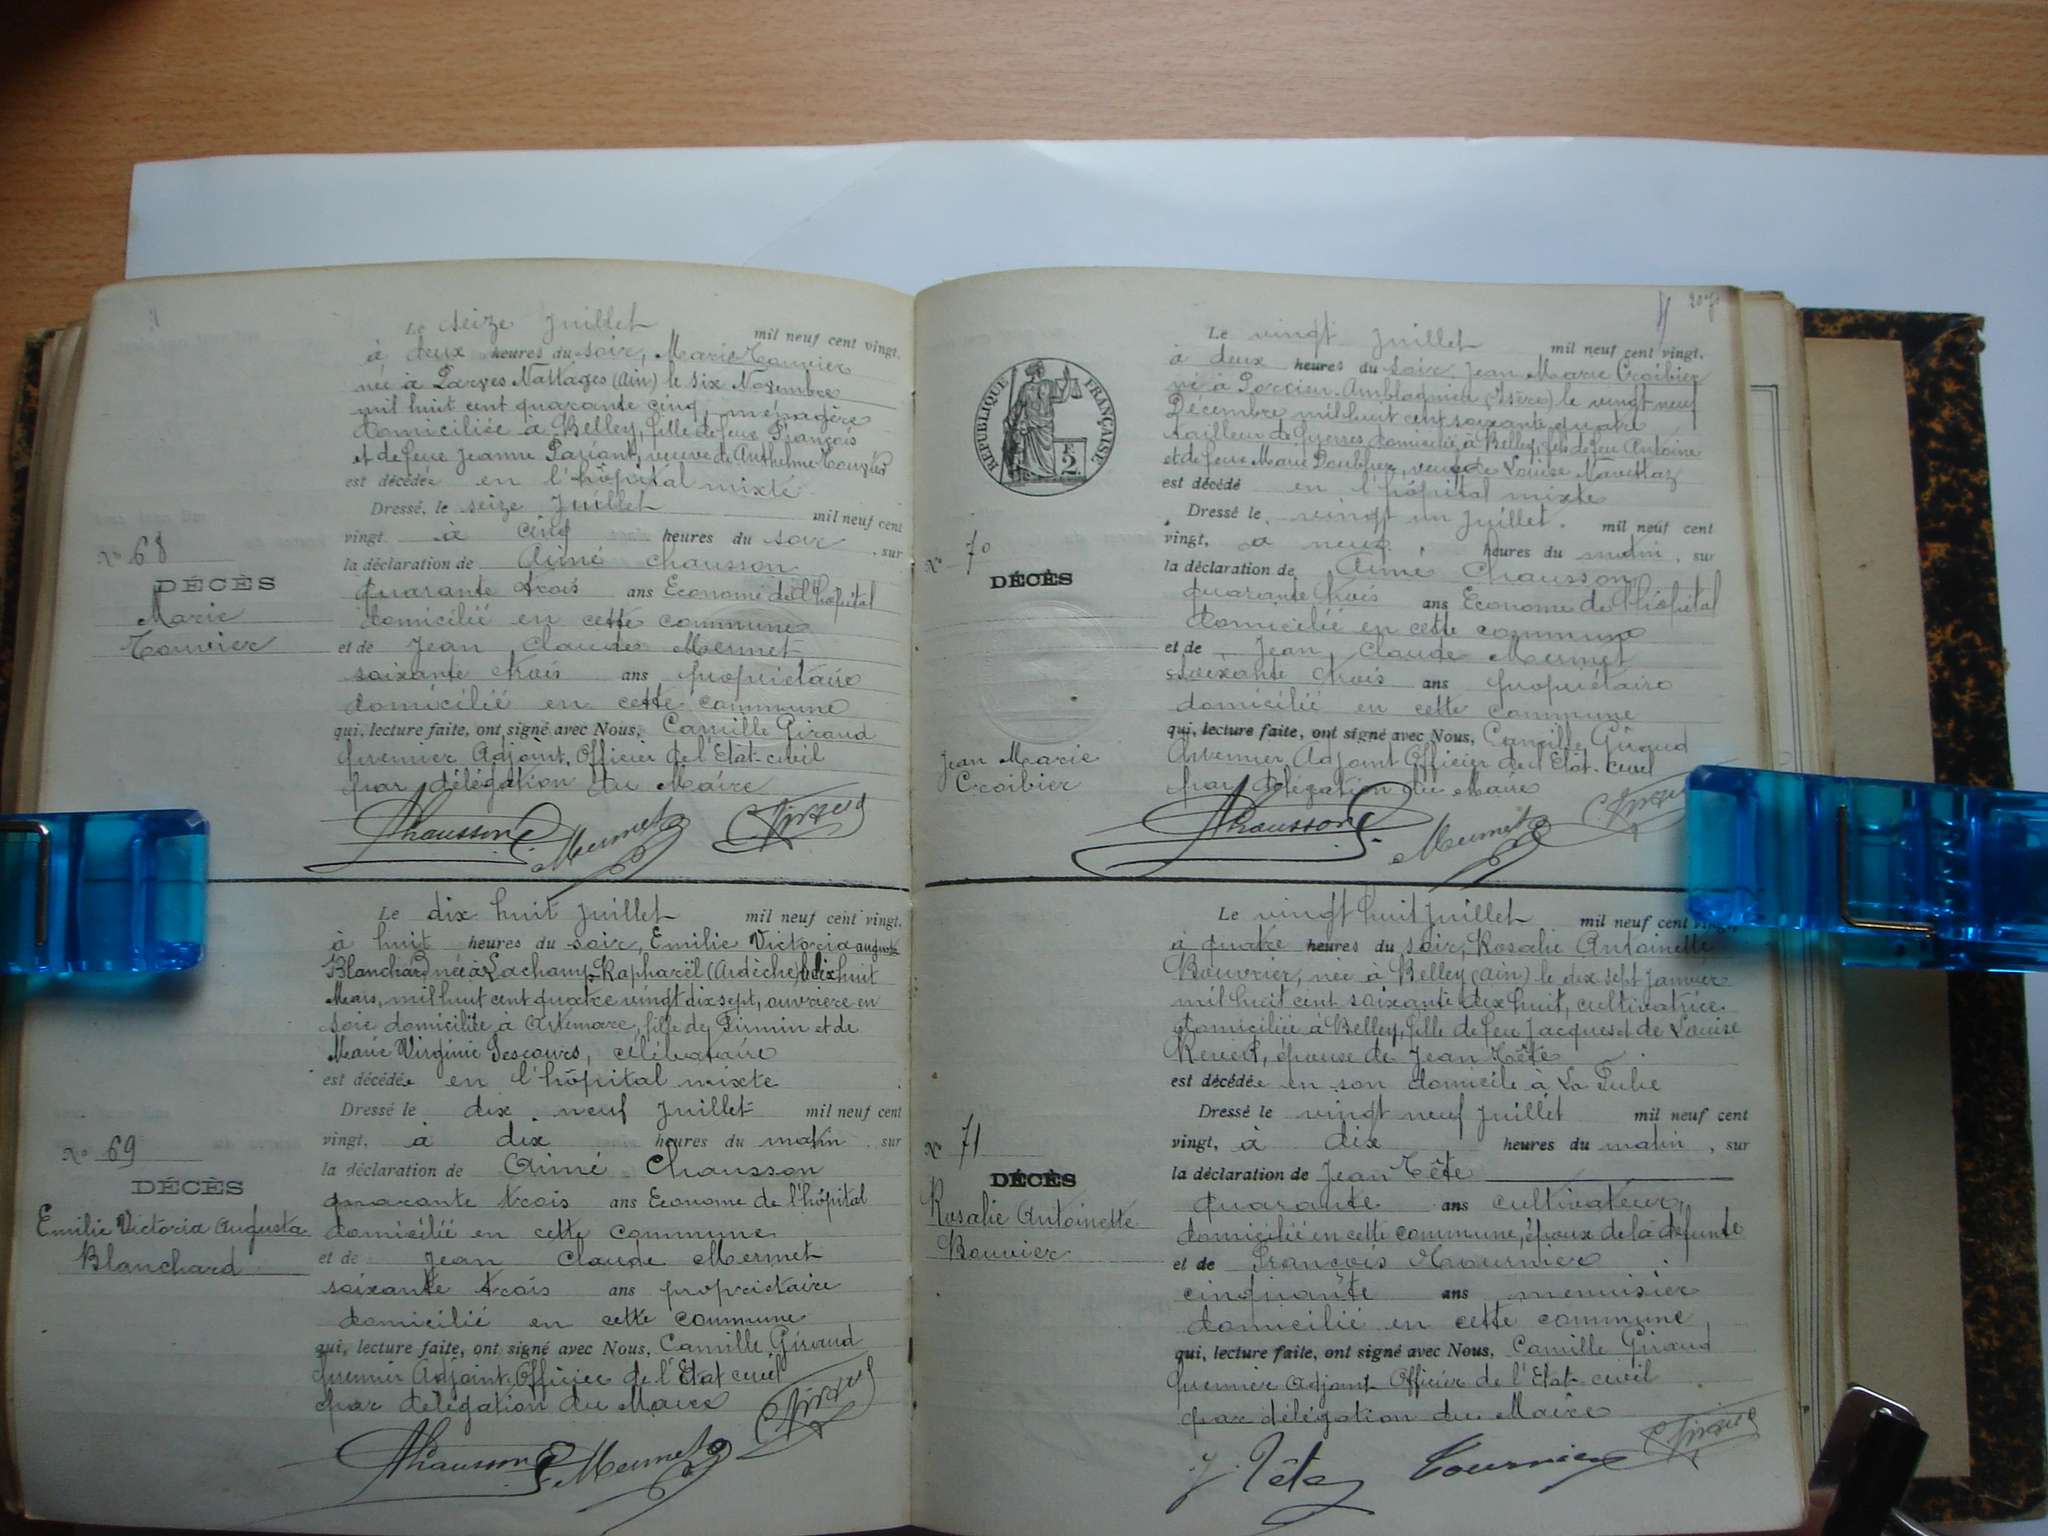 Le seize Juillet mil neuf cent vingt,
à deux heures du soir, Marie
née à Parves Nattages (Ain) le six Novembre
mil huit cent quarante cinq, ménagère
domiciliée à Belley, fille de feux François
et de feue Jeanne veuve de Anthelme
est décédée en l'hôpital mixte
Dressé, le seize Juillet mil neuf cent
vingt à cinq heures du soir, sur
la déclaration de Aimé Chausson
quarante trois ans Econome de l'hôpital
domicilié en cette commune
et de Jean Claude Mermet
soixante trois ans propriétaire
domicilié en cette commune
qui, lecture faite, ont signé avec Nous, Camille Giraud
premier Adjoint, Officier de l'Etat-civil
par délégation du Maire
Chausson Mermet C Giraud
No 68
DÉCÈS
Marie
Le dix huit Juillet mil neuf cent vingt,
à huit heures du soir, Emilie Victoria augusta
Blanchard née à Lachamp-Raphaël (Ardèche) le dix huit
Mars, mil huit cent quatre vingt dix sept, ouvrière en
soie domiciliée à Artemare, fille de Firmin et de
Marie Virginie Descours, célibataire
est décédée en l'hôpital mixte
Dressé le dix neuf Juillet mil neuf cent
vingt, à dix heures du matin, sur
la déclaration de Aimé Chausson
quarante trois ans Econome de l'hôpital
domicilié en cette commune
et de Jean Claude Mermet
soixante trois ans propriétaire
domicilié en cette commune
qui, lecture faite, ont signé avec Nous, Camille Giraud
premier Adjoint, Officier de l'Etat civil
par délégation du Maire
Chausson Mermet C Giraud
No 69
DÉCÈS
Emilie Victoria Augusta
Blanchard
207
RÉPUBLIQUE FRANÇAISE
2F.
Le vingt Juillet mil neuf cent vingt,
à deux heures du soir Jean Marie Croibier
né à Porcieu-Amblagnieu (Isère) le vingt-neuf
Décembre mil huit cent soixante quatre
tailleur de pierres domicilié à Belley, fils de feu Antoine
et de feue Marie veuf de Louise
est décédé en l'hôpital mixte
Dressé le vingt un Juillet. mil neuf cent
vingt, à neuf heures du matin, sur
la déclaration de Aimé Chausson
quarante trois ans Econome de l'hôpital
domicilié en cette commune
et de Jean Claude Mermet
soixante trois ans propriétaire
domicilié en cette commune
qui, lecture faite, ont signé avec Nous, Camille Giraud
premier Adjoint Officier de l'Etat-civil
par délégation du Maire
Chausson Mermet C Giraud
No 70
DÉCÈS
Jean Marie
Croibier
Le vingt huit Juillet mil neuf cent vingt,
à quatre heures du soir, Rosalie Antoinette
Bouvier, née à Belley (Ain) le dix sept Janvier
mil huit cent soixante dix huit, cultivatrice
domiciliée à Belley, fille de feu Jacques et de Louise
épouse de Jean Tête
est décédée en son domicile à La
Dressé le vingt neuf Juillet mil neuf cent
vingt, à dix heures du matin, sur
la déclaration de Jean Tête
quarante ans cultivateur,
domicilié en cette commune, époux de la défunte
et de François Tournier
cinquante ans menuisier
domicilié en cette commune,
qui, lecture faite, ont signé avec Nous, Camille Giraud
premier Adjoint Officier de l'Etat-civil
par délégation du Maire
J. Tête Tournier C Giraud
No 71
DÉCÈS
Rosalie Antoinette
Bouvier